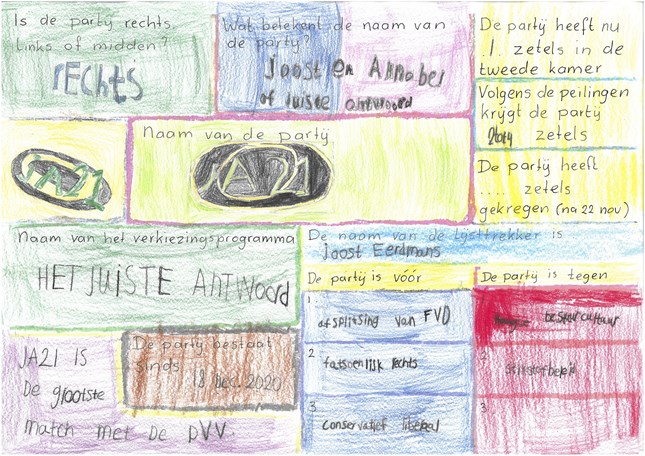 Is de partij rechts,
links of midden?
rechts
Wat betekent de naam van
de partij?
Joost en Annabel
of juiste antwoord
De partij heeft nu
.1. zetels in de
tweede kamer
Volgens de peilingen
krijgt de partij
zetels
De partij heeft
.... zetels
gekregen (na 22 nov)
JA21
Naam van de partij
JA21
Naam van het verkiezingsprogramma
HET JUISTE ANTWOORD
De naam van de lijsttrekker is
Joost Eerdmans
De partij is vóór
1
afsplitsing van FVD
2
fatsoenlijk rechts
3
conservatief liberaal
De partij is tegen
bestuurcultuur
2
stikstofbeleid
3
JA21 is
De grootste
match met de PVV.
De partij bestaat
sinds 18 dec. 2020